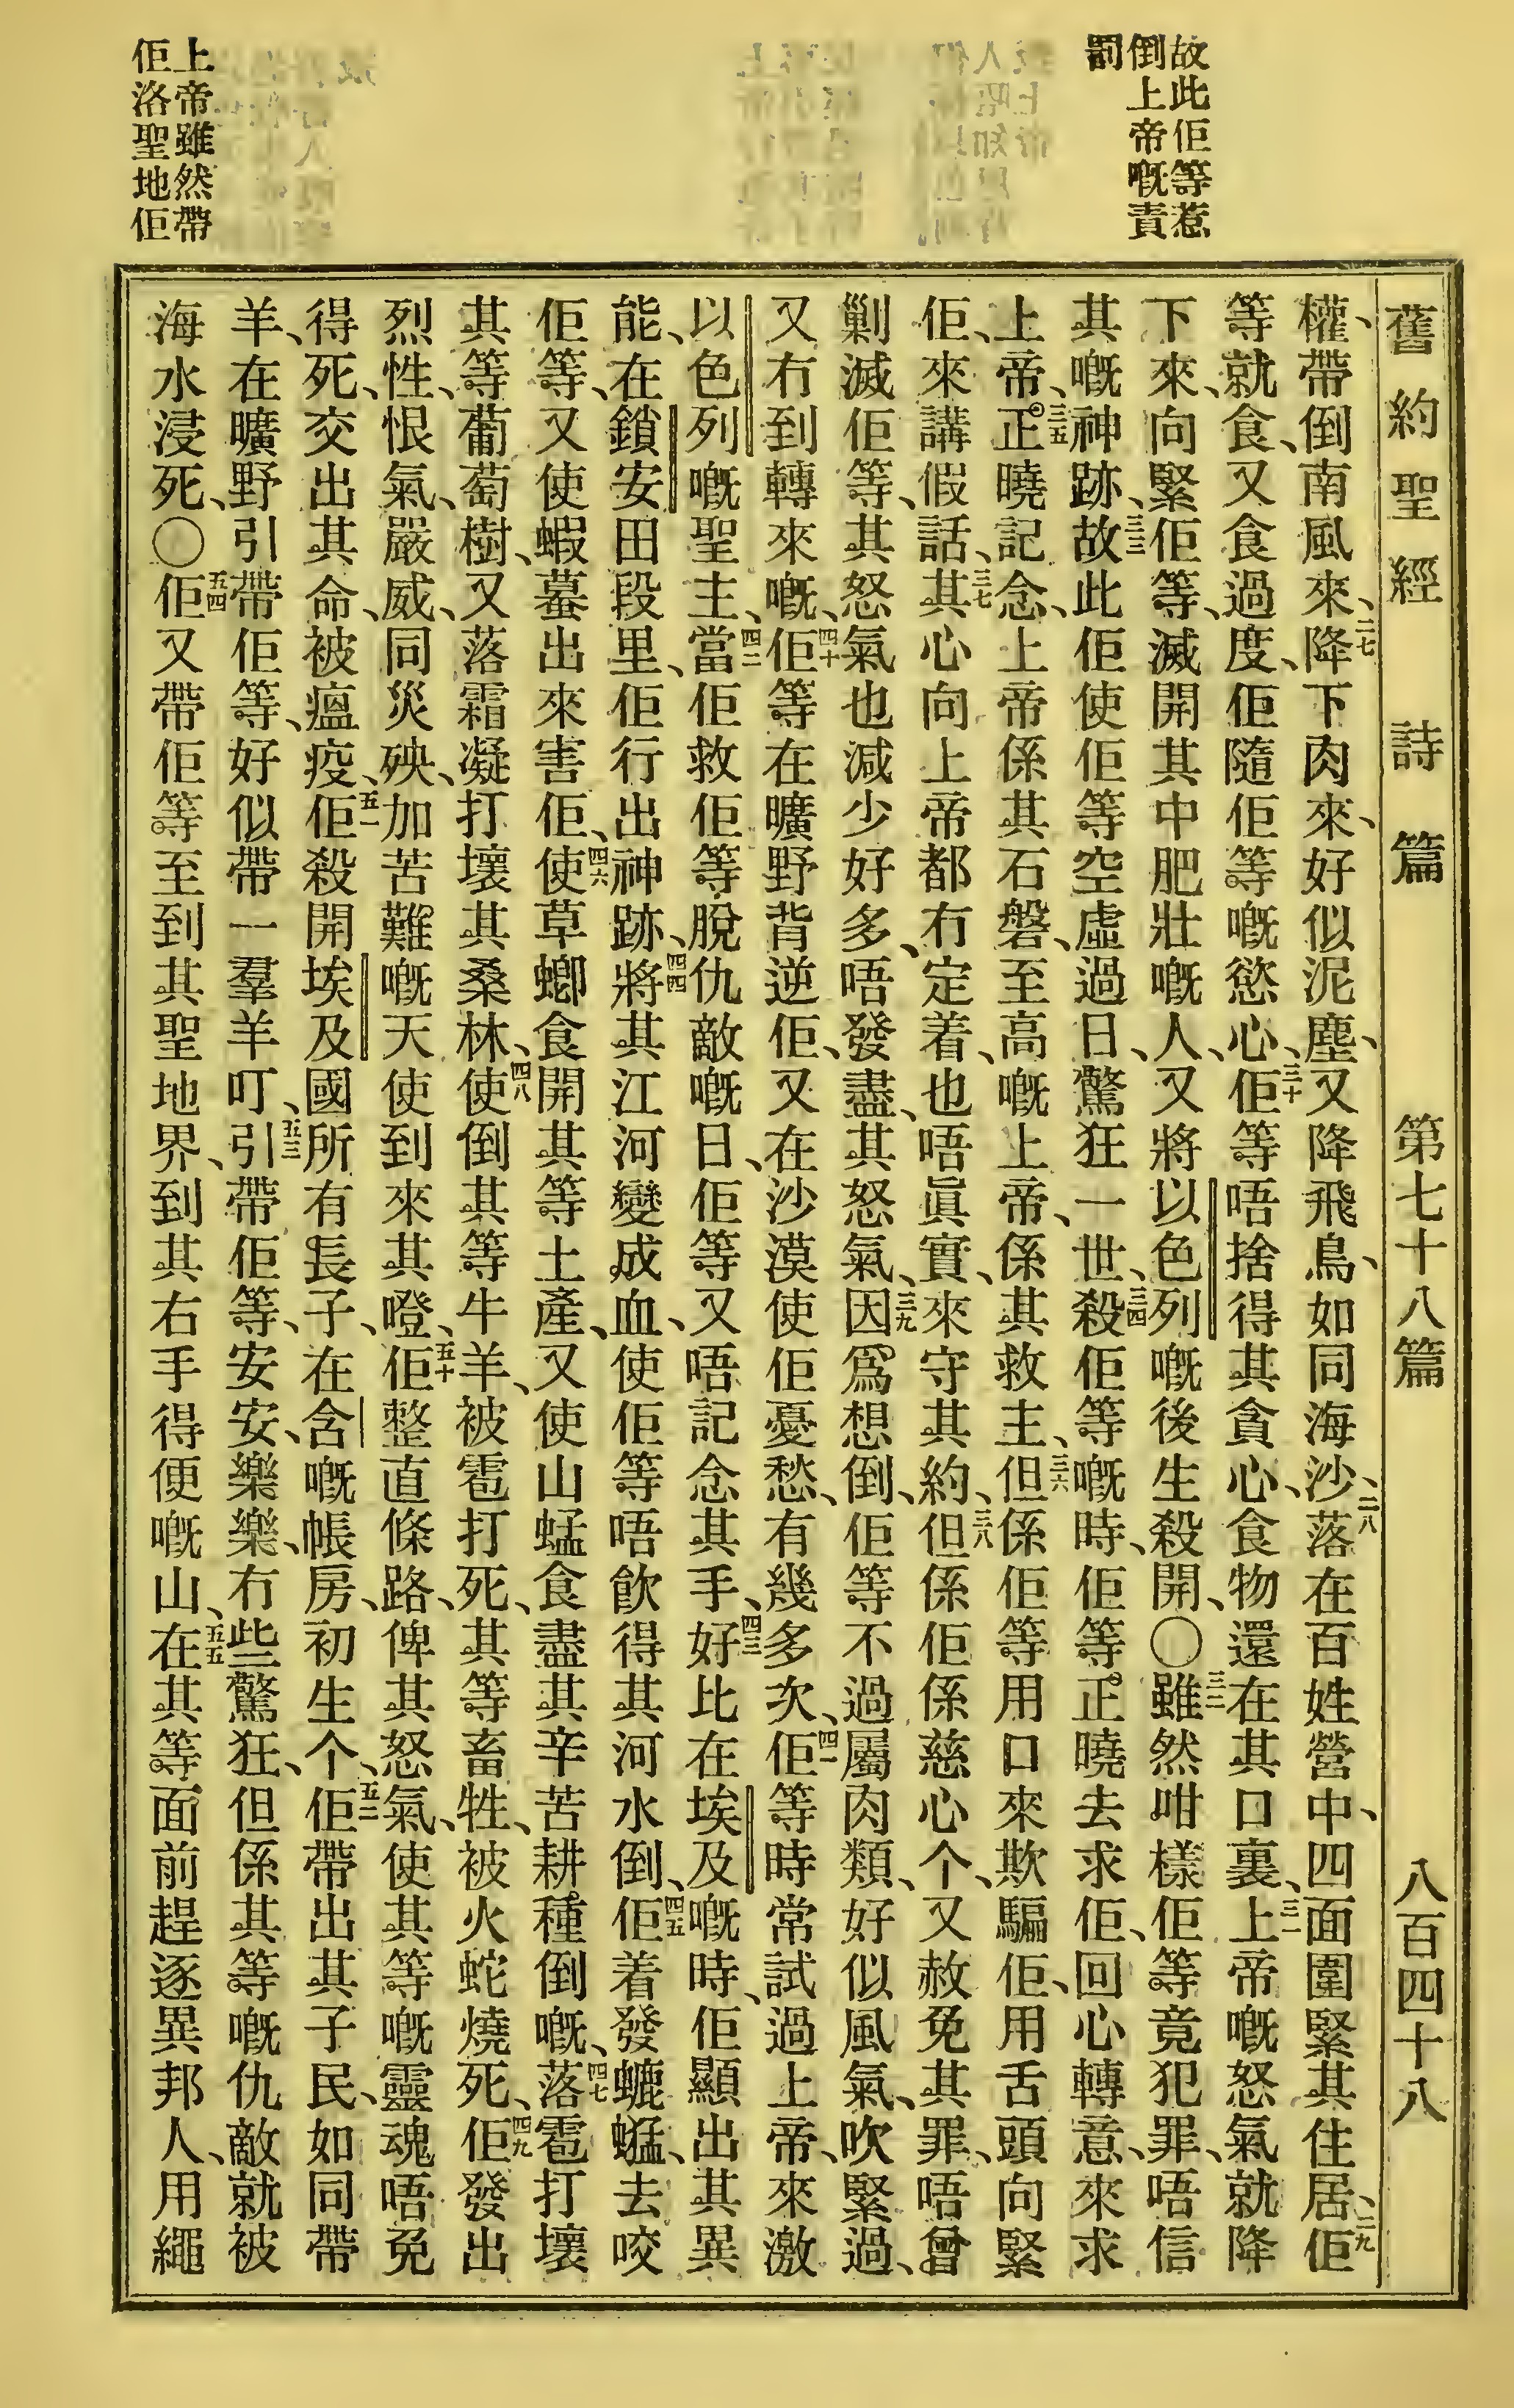 故此佢等惹
倒上帝嘅責
罰
上帝雖然帶
佢洛聖地佢
舊約聖經 詩篇 第七十八篇 八百四十八
權、帶倒南風來、二七降下肉來、好似泥塵、又降飛鳥、如同海沙、二八落在百姓營中、四面圍緊其住居、二九佢
等就食、又食過度、佢隨佢等嘅慾心、三十佢等唔捨得其貪心、食物還在其口裏、三一上帝嘅怒氣就降
下來、向緊佢等、滅開其中肥壯嘅人、又將以色列嘅後生殺開、〇三二雖然咁樣佢等竟犯罪、唔信
其嘅神跡、三三故此佢使佢等空虛過日、驚狂一世、三四殺佢等嘅時、佢等正曉去求佢、回心轉意、來求
上帝、三五正曉記念、上帝係其石磐、至高嘅上帝、係其救主、三六但係佢等用口來欺騙佢、用舌頭向緊
佢、來講假話、三七其心向上帝都冇定着、也唔眞實、來守其約、三八但係佢係慈心个、又赦免其罪、唔曾
剿滅佢等、其怒氣也減少好多、唔發盡、其怒氣、三九因爲想倒、佢等不過屬肉類、好似風氣、吹緊過、
又冇到轉來嘅、四十佢等在曠野背逆佢、又在沙漠使佢憂愁、有幾多次、四一佢等時常試過上帝、來激
以色列嘅聖主、四二當佢救佢等脫仇敵嘅日、佢等又唔記念其手、四三好比在埃及嘅時、佢顯出其異
能、在鎖安田段里、佢行出神跡、四四將其江河變成血、使佢等唔飲得其河水倒、四五佢着發螕蜢、去咬
佢等、又使蝦蟇出來害佢、四六使草螂食開其等土產、又使山蜢食盡其辛苦耕種倒嘅、四七落雹打壞
其等葡萄樹、又落霜凝打壞其桑林、四八使倒其等牛羊、被雹打死、其等畜牲、被火蛇燒死、四九佢發出
烈性、恨氣、嚴威、同災殃、加苦難嘅天使到來其噔、五十佢整直條路、俾其怒氣、使其等嘅靈魂唔免
得死、交出其命、被瘟疫、五一佢殺開埃及國所有長子、在含嘅帳房、初生个、五二佢帶出其子民、如同帶
羊、在曠野引帶佢等、好似帶一羣羊叮、五三引帶佢等、安安、樂樂、冇些驚狂、但係其等嘅仇敵就被
海水浸死、〇五四佢又帶佢等至到其聖地界、到其右手得便嘅山、五五在其等面前趕逐異邦人、用繩